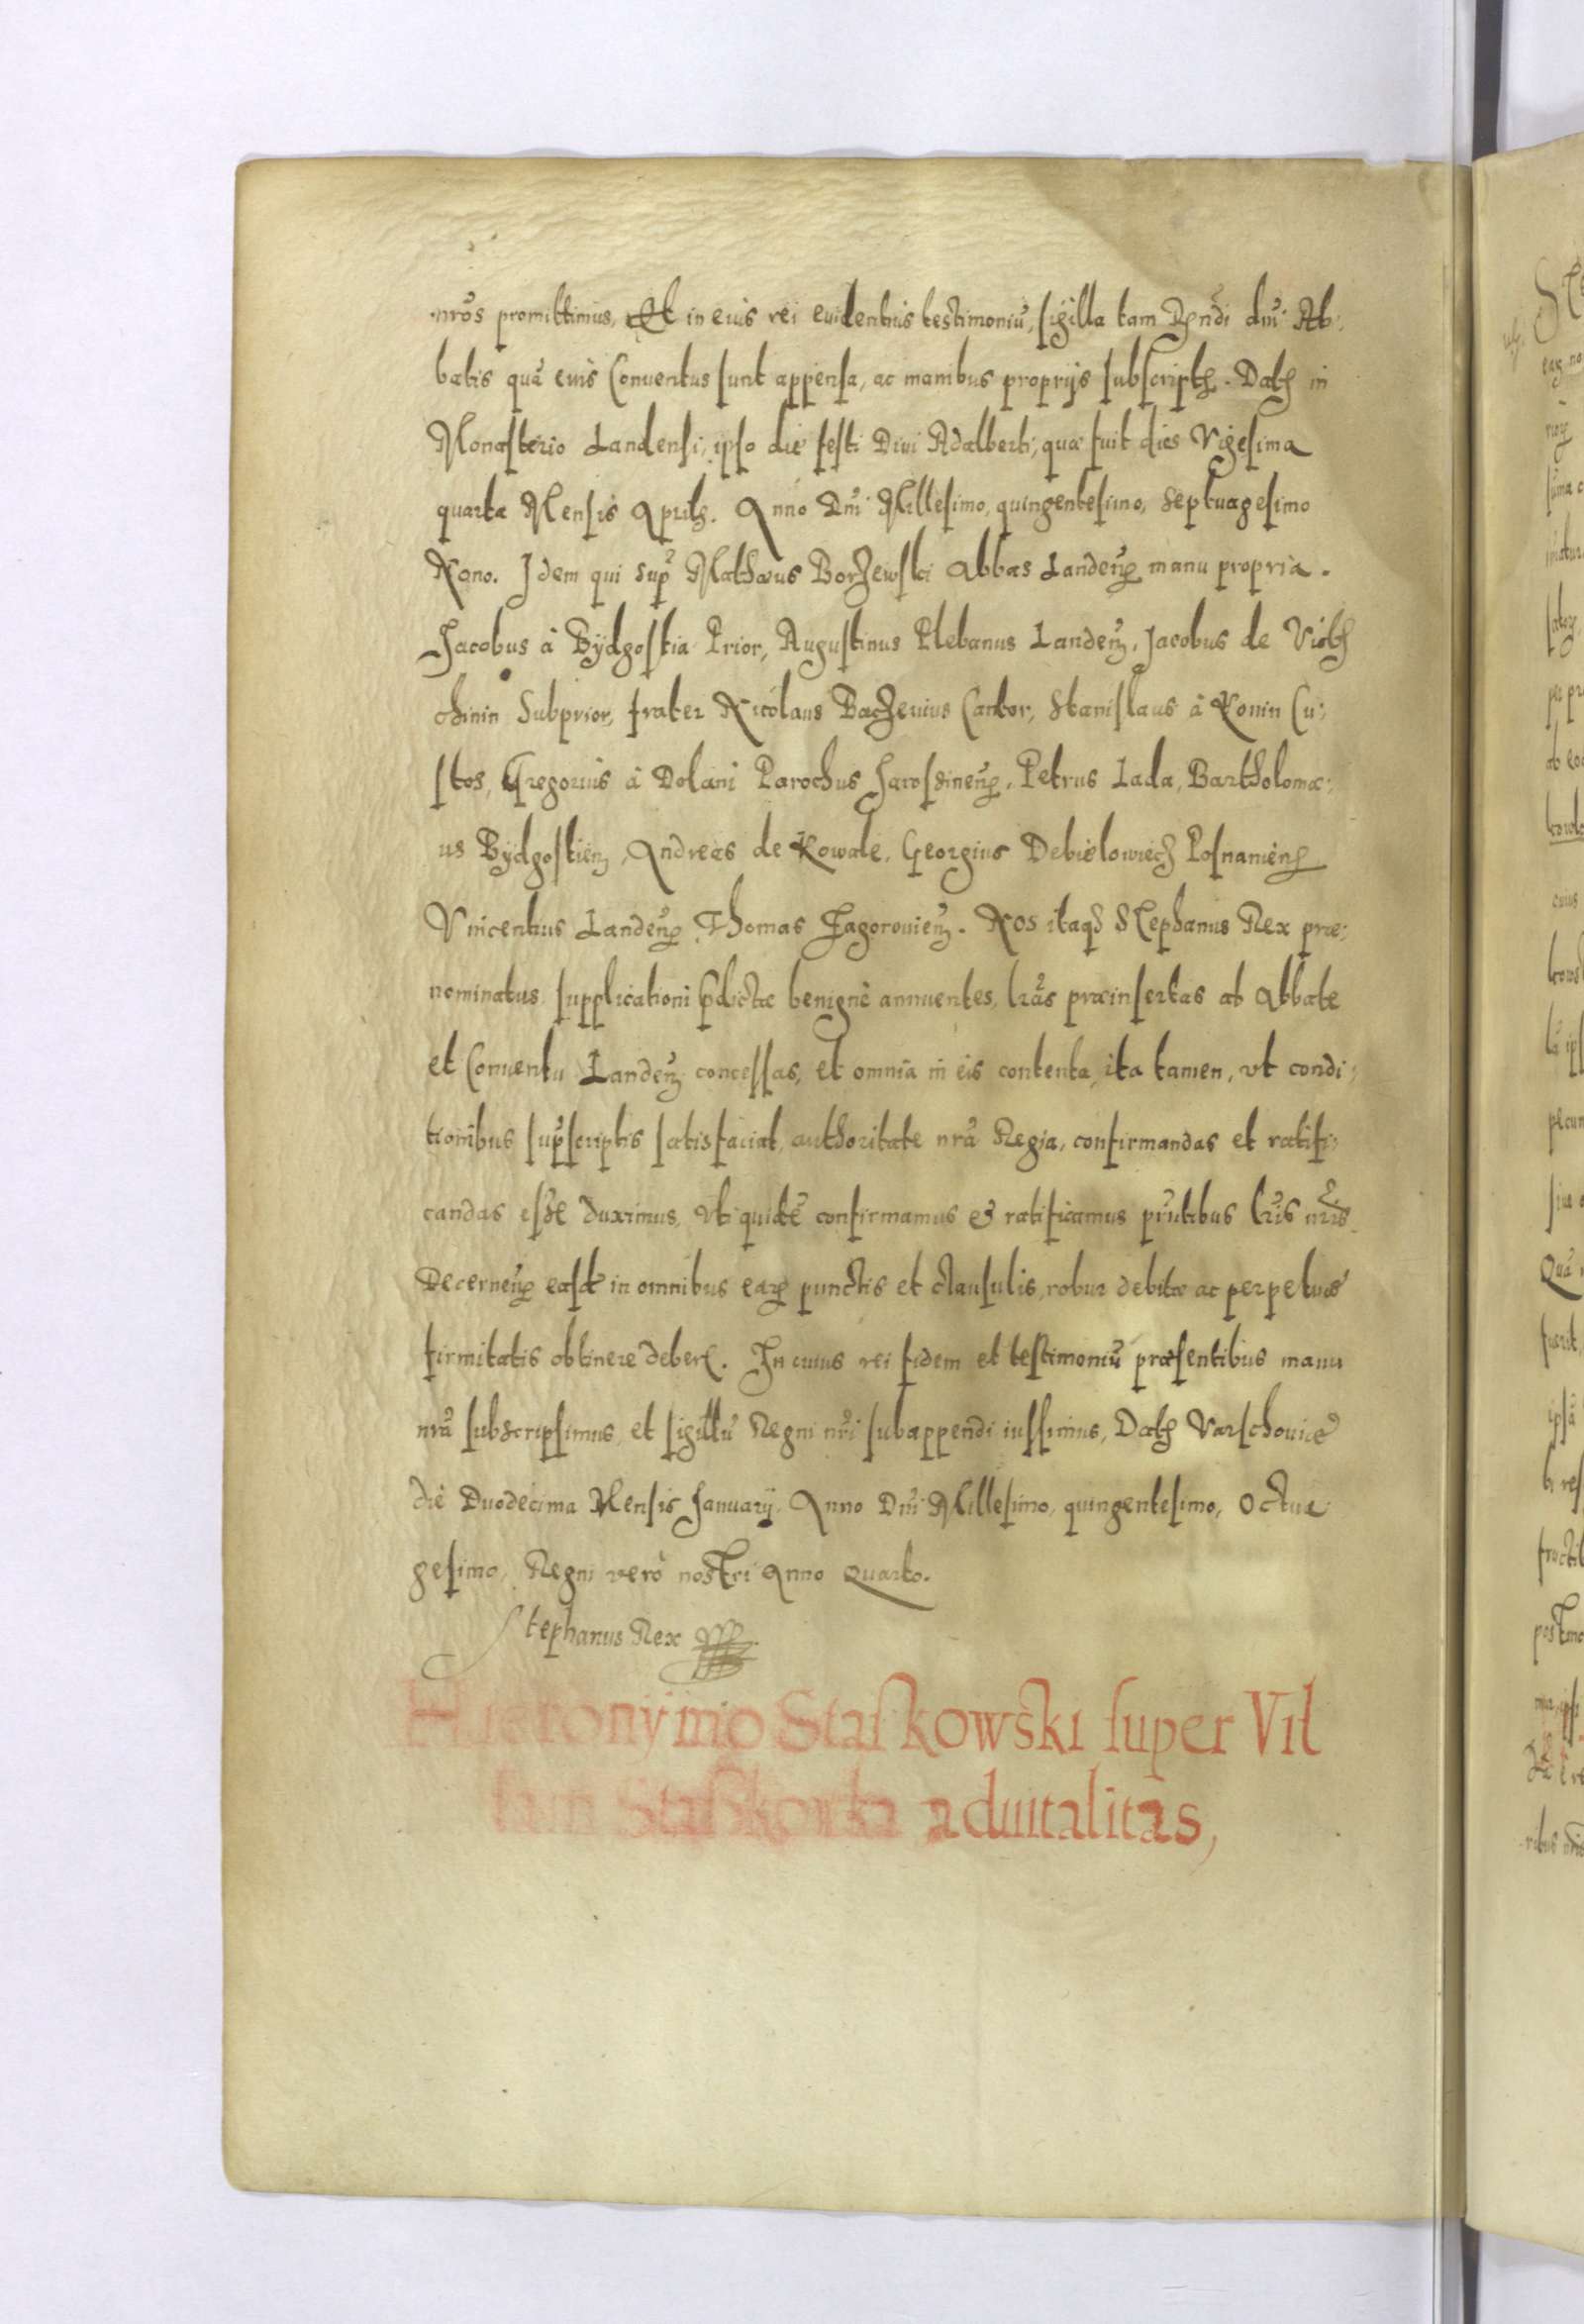 nros promittimus, Et in eius rei euidentius testimoniũ, sigilla tam Rñdi dñi Ab:
batis quã eius Conuentus sunt appensa, ac manibus proprijs subscript. Dat in
Monasterio Landensi, ipso die festi Diui Adalberti, quæ fuit dies Vigesima
quarta Mensis Aprilʒ. Anno Dñi Millesimo, quingentesimo, Septuagesimo
Nono. Idem qui supr̃ Mathæus Borzewski Abbas Landeñ manu propria.
Jacobus à Bÿdgostia Prior, Augustinus Plebanus Landeñ, Jacobus de Vist
chinin Subprior, frater Nicolaus Baczenius Cantor, Stanislaus à Konin Cu:
stos, Gregorius à Dolani Parochus Jaroslineñ, Petrus Lada, Bartholomæ:
us Bÿdgostieñ, Andreas de Kowale, Georgius Debielowiecz Posnanieñ
Vincentius Landeñ Thomas Zagorouieñ. Nos itaqʒ Stephanus Rex præ:
nominatus, supplicationi p̃dictæ benignè annuentes, lr̃as præinsertas ab Abbate
et Conuentu Landeñ concessas, et omnia in eis contenta, ita tamen, vt condi:
tionibus supr̃scriptis satisfaciat, authoritate nrã Regia, confirmandas et ratifi:
candas esse duximus, Vti quidẽ confirmamus et ratificamus pr̃ntibus lr̃is nr̃is.
Decerneñ easdẽ in omnibus earʒ punctis et clausulis, robur debitæ ac perpetuæ
firmitatis obtinere debere. In cuius rei fidem et testimoniũ præsentibus manu
nrã subscripsimus, et sigillũ Regni nri subappendi iussimus, Dat Varschouiæ
die Duodecima Mensis Januarij. Anno Dñi Millesimo, quingentesimo, Octua
gesimo, Regni verò nostri Anno Quarto.
Stephanus Rex
Hieronymo Staskowski super Vil
lam Staskowka aduitalitas,